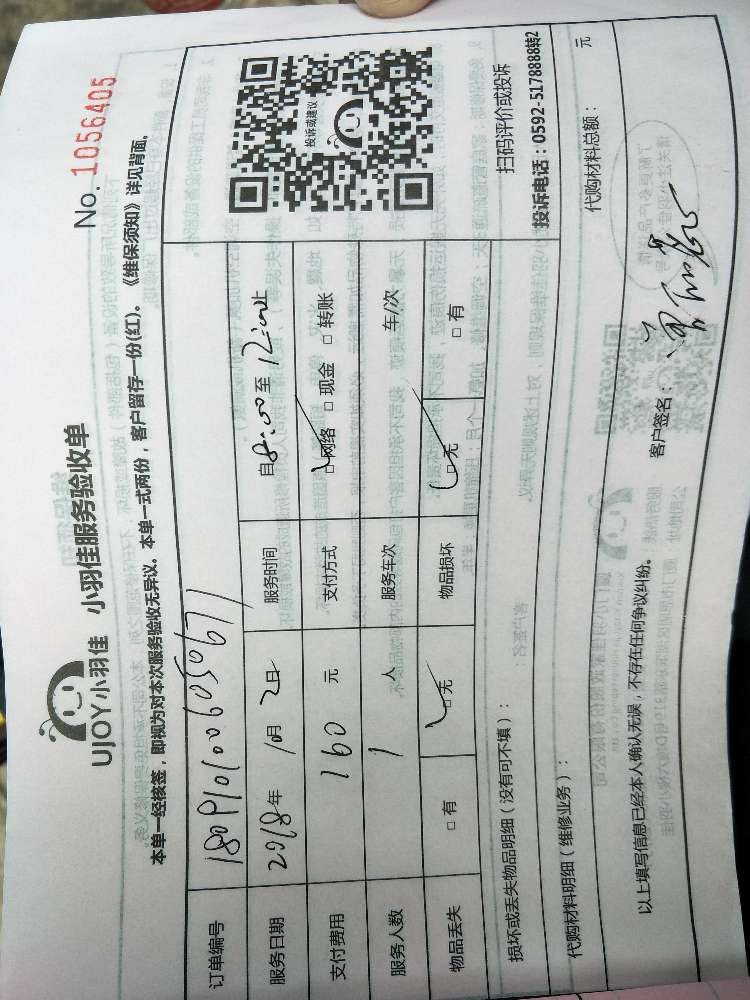 UJOY小羽佳 小羽佳服务验收单
No. 1056405
本单一经核签，即视为对本次服务验收无异议。本单一式两份，客户留存一份(红)。《维保须知》详见背面。
订单编号
服务日期 2018年 10月 2日 服务时间 自8:00至12:00止
支付费用 160 元 支付方式 □网络 □现金 □转账
服务人数 1 人 服务车次 车/次
物品丢失 □有 □无 物品损坏 □无 □有
投诉或建议
扫码评价或投诉
投诉电话：0592-5178888转2
损坏或丢失物品明细（没有可不填）：
代购材料明细（维修业务）： 代购材料总额： 元
以上填写信息已经本人确认无误，不存在任何争议纠纷。 客户签名：